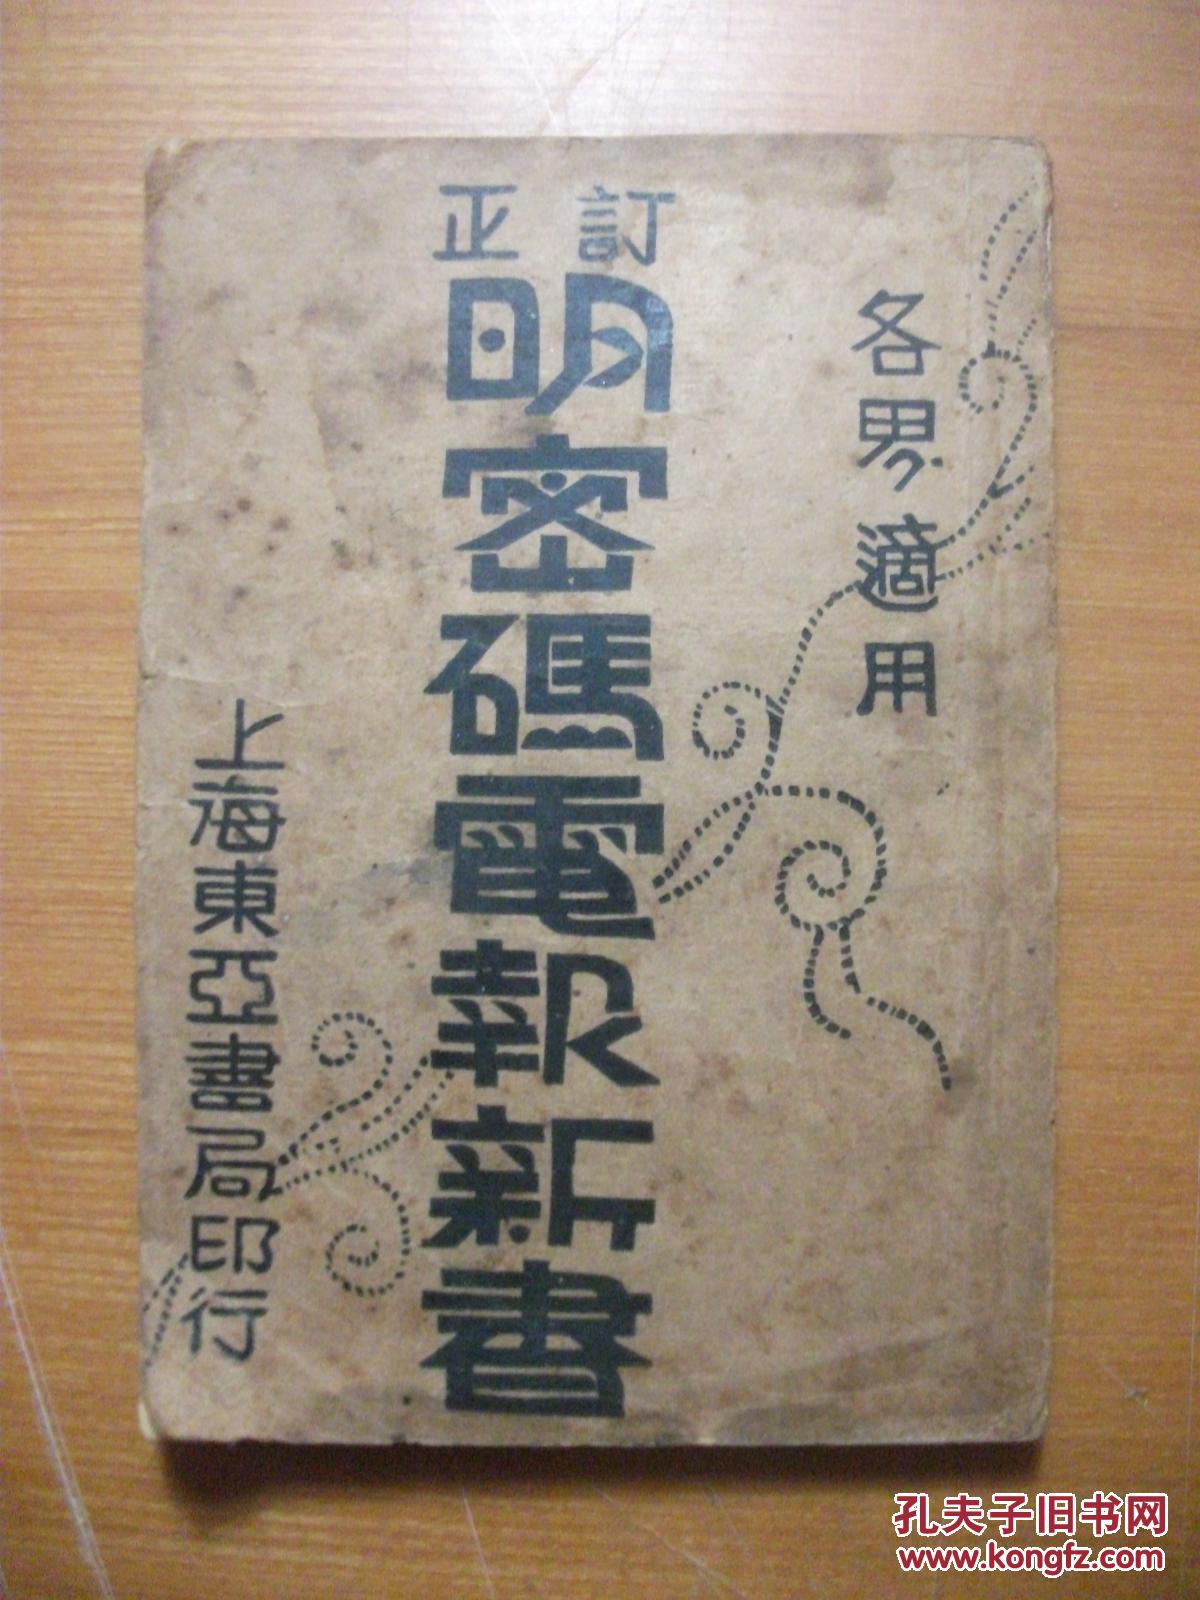 各界適用
訂正
明密碼電報新書
上海東亞書局印行
孔夫子旧书网
www.kongfz.com